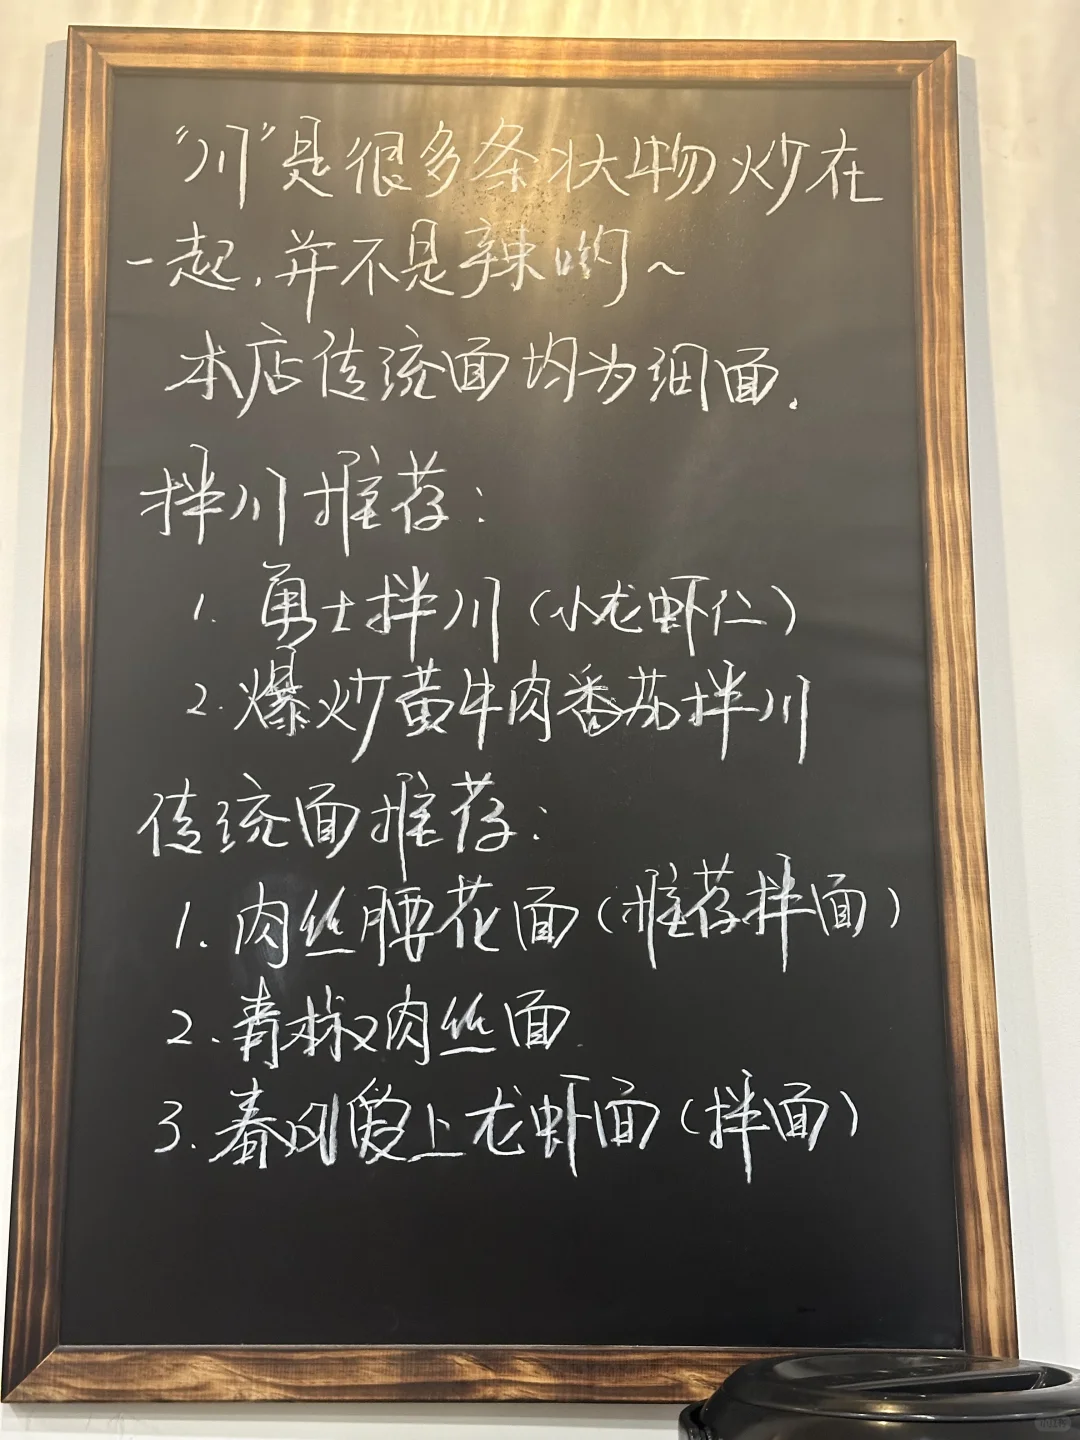 “川”是很多条状物炒在
一起,并不是辣哟~
本店传统面均为细面.
拌川推荐:
1. 勇士拌川(小龙虾仁)
2. 爆炒黄牛肉番茄拌川
传统面推荐:
1. 肉丝腰花面(推荐拌面)
2. 青椒肉丝面
3. 春风爱上龙虾面(拌面)
小红书